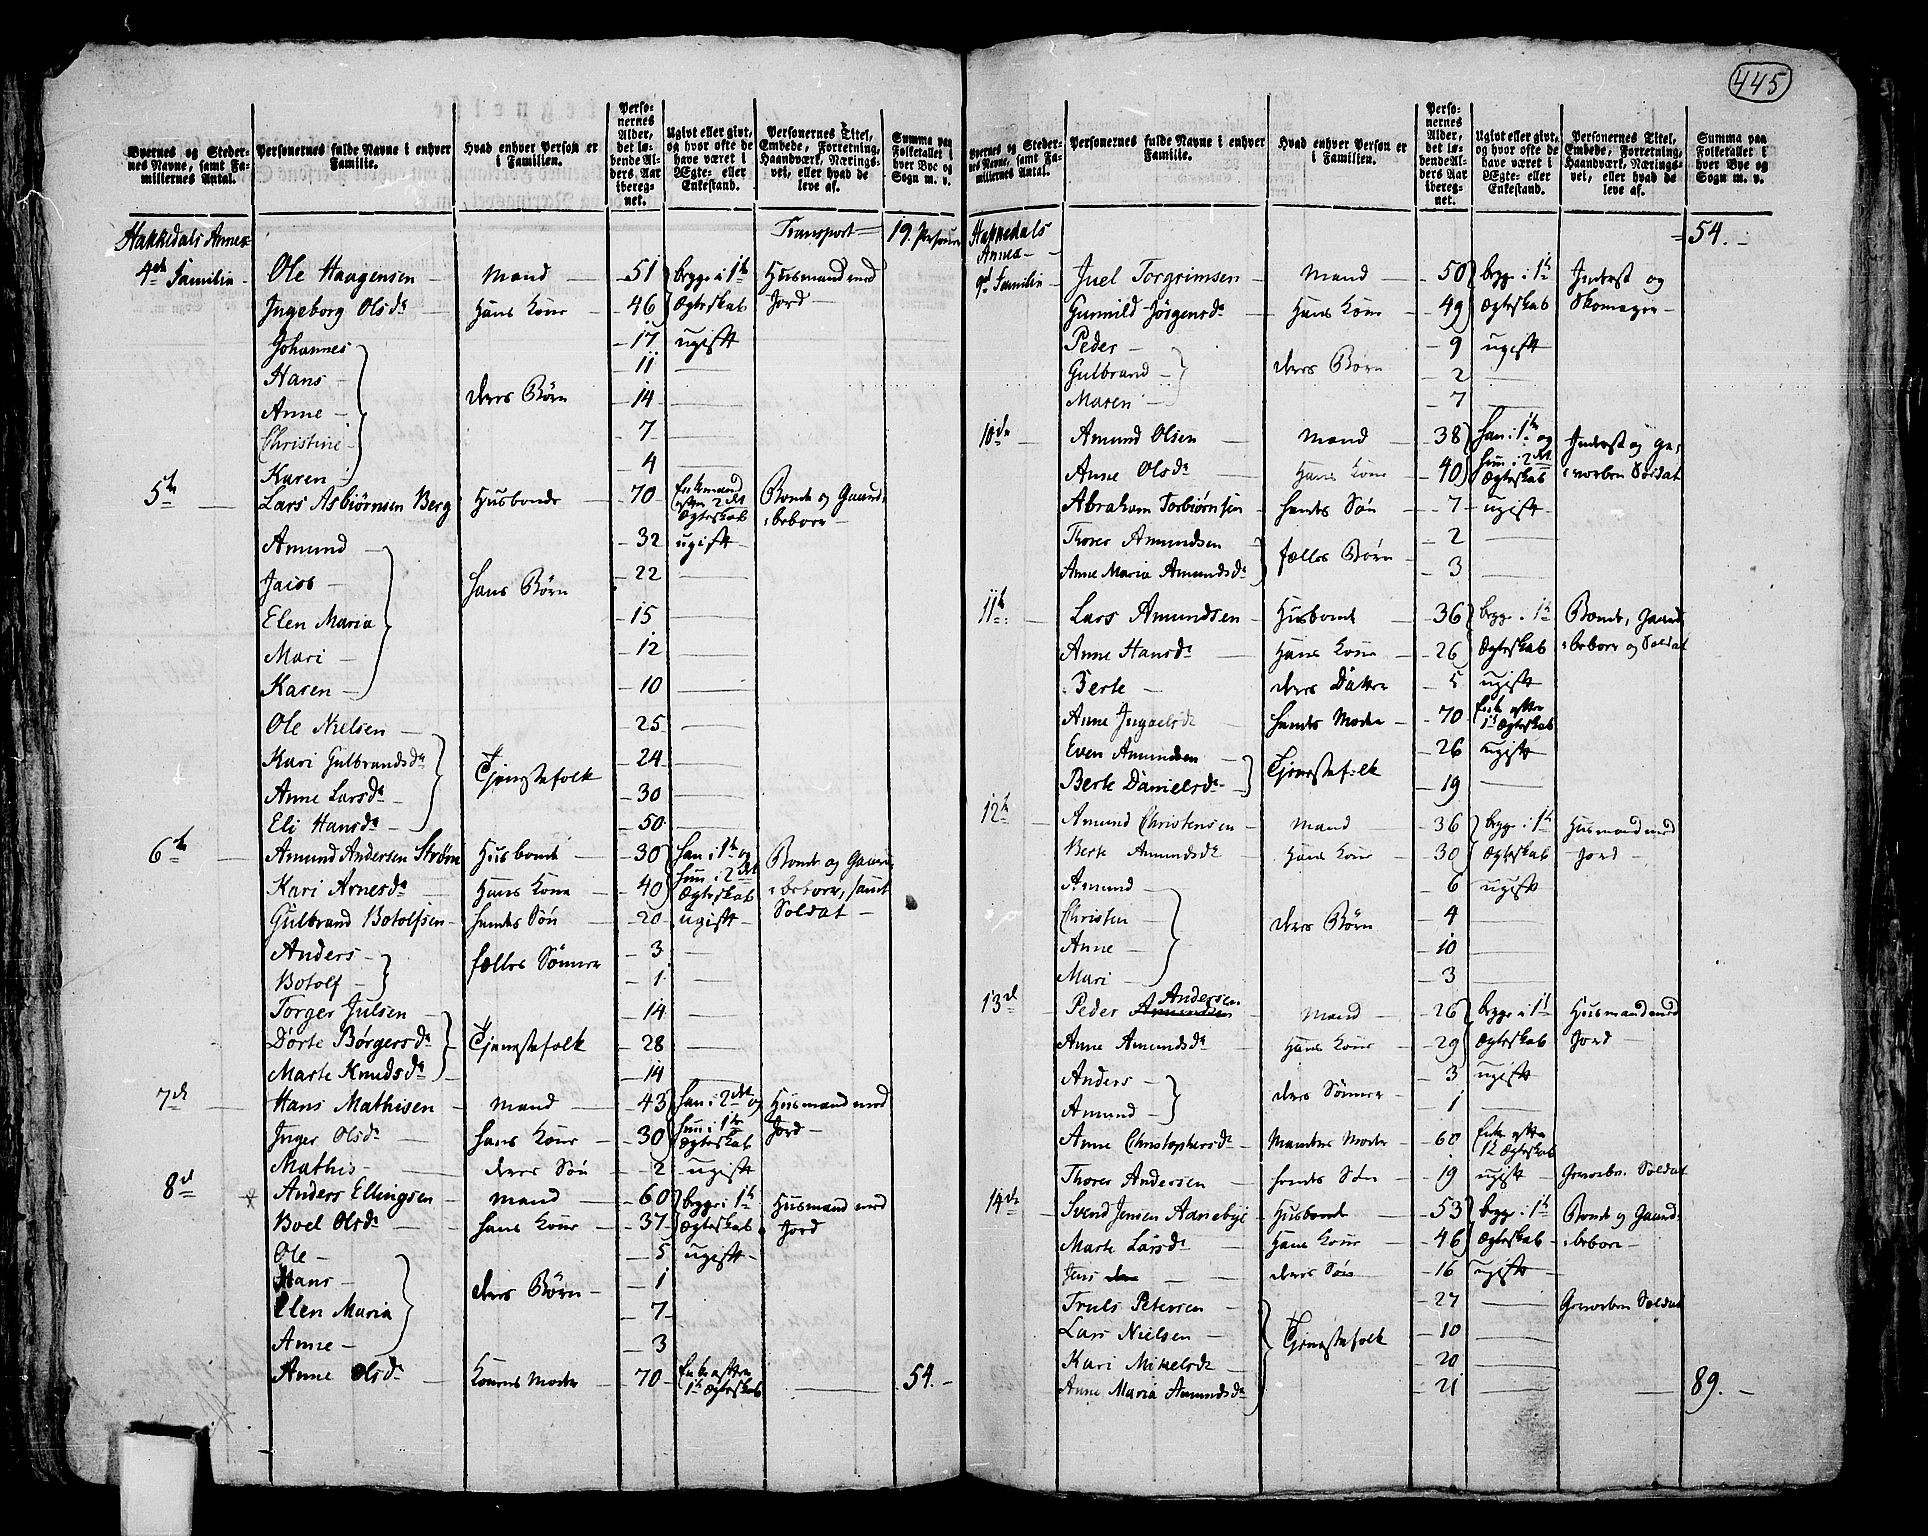 445
Byernes og Stedernes Navne, samt Familiernes Antal.
Personernes fulde Navne i enhver Familie.
Hvad enhver Person er i Familien.
Personernes Alder, det løbende Alders Aar iberegnet.
Ugivt eller givt, og hvor ofte de have været i Ægte- eller Enkestand.
Personernes Titel, Embede, Forretning, Haandværk, Næringsvei, eller hvad de leve af.
Summa paa Folketallet i hver Bye og Sogn m. v.
Hakkedals Annex Transport 19 Personer
4de Familie Ole Haagensen Mand 51 begge i 1te Husmand med
Ingeborg Olsdr Hans Kone 46 Ægteskab Jord
Johannes 17 ugift
Hans 11
Anne deres Børn 14
Christine 7
Karen 4
5te Lars Asbiørnsen Berg Husbonde 70 Enkemand efter 2det Ægteskab Bonde og Gaardbeboer
Amund 32 ugift
Jacob 22
Elen Maria hans Børn 15
Mari 12
Karen 10
Ole Nielsen 25
Kari Gulbrandsdr Tjenestefolk 24
Anne Larsdr 30
Eli Hansdr 50
6te Amund Andersen Strøm Husbonde 30 han i 1te og hun i 2det Bonde og Gaard
Kari Arnesdr Hans Kone 40 Ægteskab beboer, samt
Gulbrand Botolfsen hendes Søn 20 ugift Soldat
Anders fælles Sønner 3
Botolf 1
Torger Julsen 14
Dorte Børgersdr Tjenestefolk 28
Marte Knudsdr 14
7de Hans Mathisen Mand 43 han i 2det og Husmand med
Inger Olsdr hans Kone 30 hun i 1te Ægteskab Jord
Mathis deres Søn 2 ugift
8de Anders Ellingsen Mand 60 begge i 1te Husmand med
Boel Olsdr hans Kone 37 Ægteskab Jord
Ole 5 ugift
Hans deres Børn 1
Elen Maria 7
Anne 3
Anne Olsdr Konens Moder 70 Enke efter 1te Ægteskab 54.
Byernes og Stedernes Navne, samt Familiernes Antal.
Personernes fulde Navne i enhver Familie.
Hvad enhver Person er i Familien.
Personernes Alder, det løbende Alders Aar iberegnet.
Ugivt eller givt, og hvor ofte de have været i Ægte- eller Enkestand.
Personernes Titel, Embede, Forretning, Haandværk, Næringsvei, eller hvad de leve af.
Summa paa Folketallet i hver Bye og Sogn m. v.
Hakkedals Annex 54.
9de Familie Juel Torgrimsen Mand 50 begge i 1te Inderst og
Gunnild Jørgensdr Hans Kone 49 Ægteskab Skomager
Peder 9 ugift
Gulbrand deres Børn 2
Maren 7
10de Amund Olsen Mand 38 han i 1te og Inderst og ge-
Anne Olsdr Hans Kone 40 hun i 2det Ægteskab vorben Soldat
Abraham Torbiørnsen hendes Søn 7 ugift
Thorer Amundsen fælles Børn 2
Anne Maria Amundsdr 3
11te Lars Amundsen Husbonde 36 begge i 1te Bonde, Gaard
Anne Hansdr Hans Kone 26 Ægteskab beboer og Soldat
Berte deres Datter 5 ugift
Anne Ingaelsdr hendes Moder 70 Enke efter 1te Ægteskab
Even Amundsen Tjenestefolk 26 ugift
Berte Danielsdr 19
12te Amund Christensen Mand 36 begge i 1te Husmand med
Berte Amundsdr Hans Kone 30 Ægteskab Jord
Amund 6 ugift
Christen deres Børn 4
Anne 10
Mari 3
13de Peder Amundsen Andersen Mand 26 begge i 1te Husmand med
Anne Amundsdr Hans Kone 29 Ægteskab Jord
Anders deres Sønner 3 ugift
Amund 1
Anne Christophersdr Mandens Moder 60 Enke efter 1te Ægteskab
Thorer Andersen hendes Søn 19 ugift Gevorben Soldat
14de Svend Jensen Aanebye Husbonde 53 begge i 1te Bonde og Gaard-
Marte Larsdr Hans Kone 46 Ægteskab beboer
Jens deres Søn 16 ugift
Truls Petersen 27 Gevorben Soldat
Lars Nielsen Tjenestefolk 10
Kari Mikelsdr 20
Anne Maria Amundsdr 21 89.